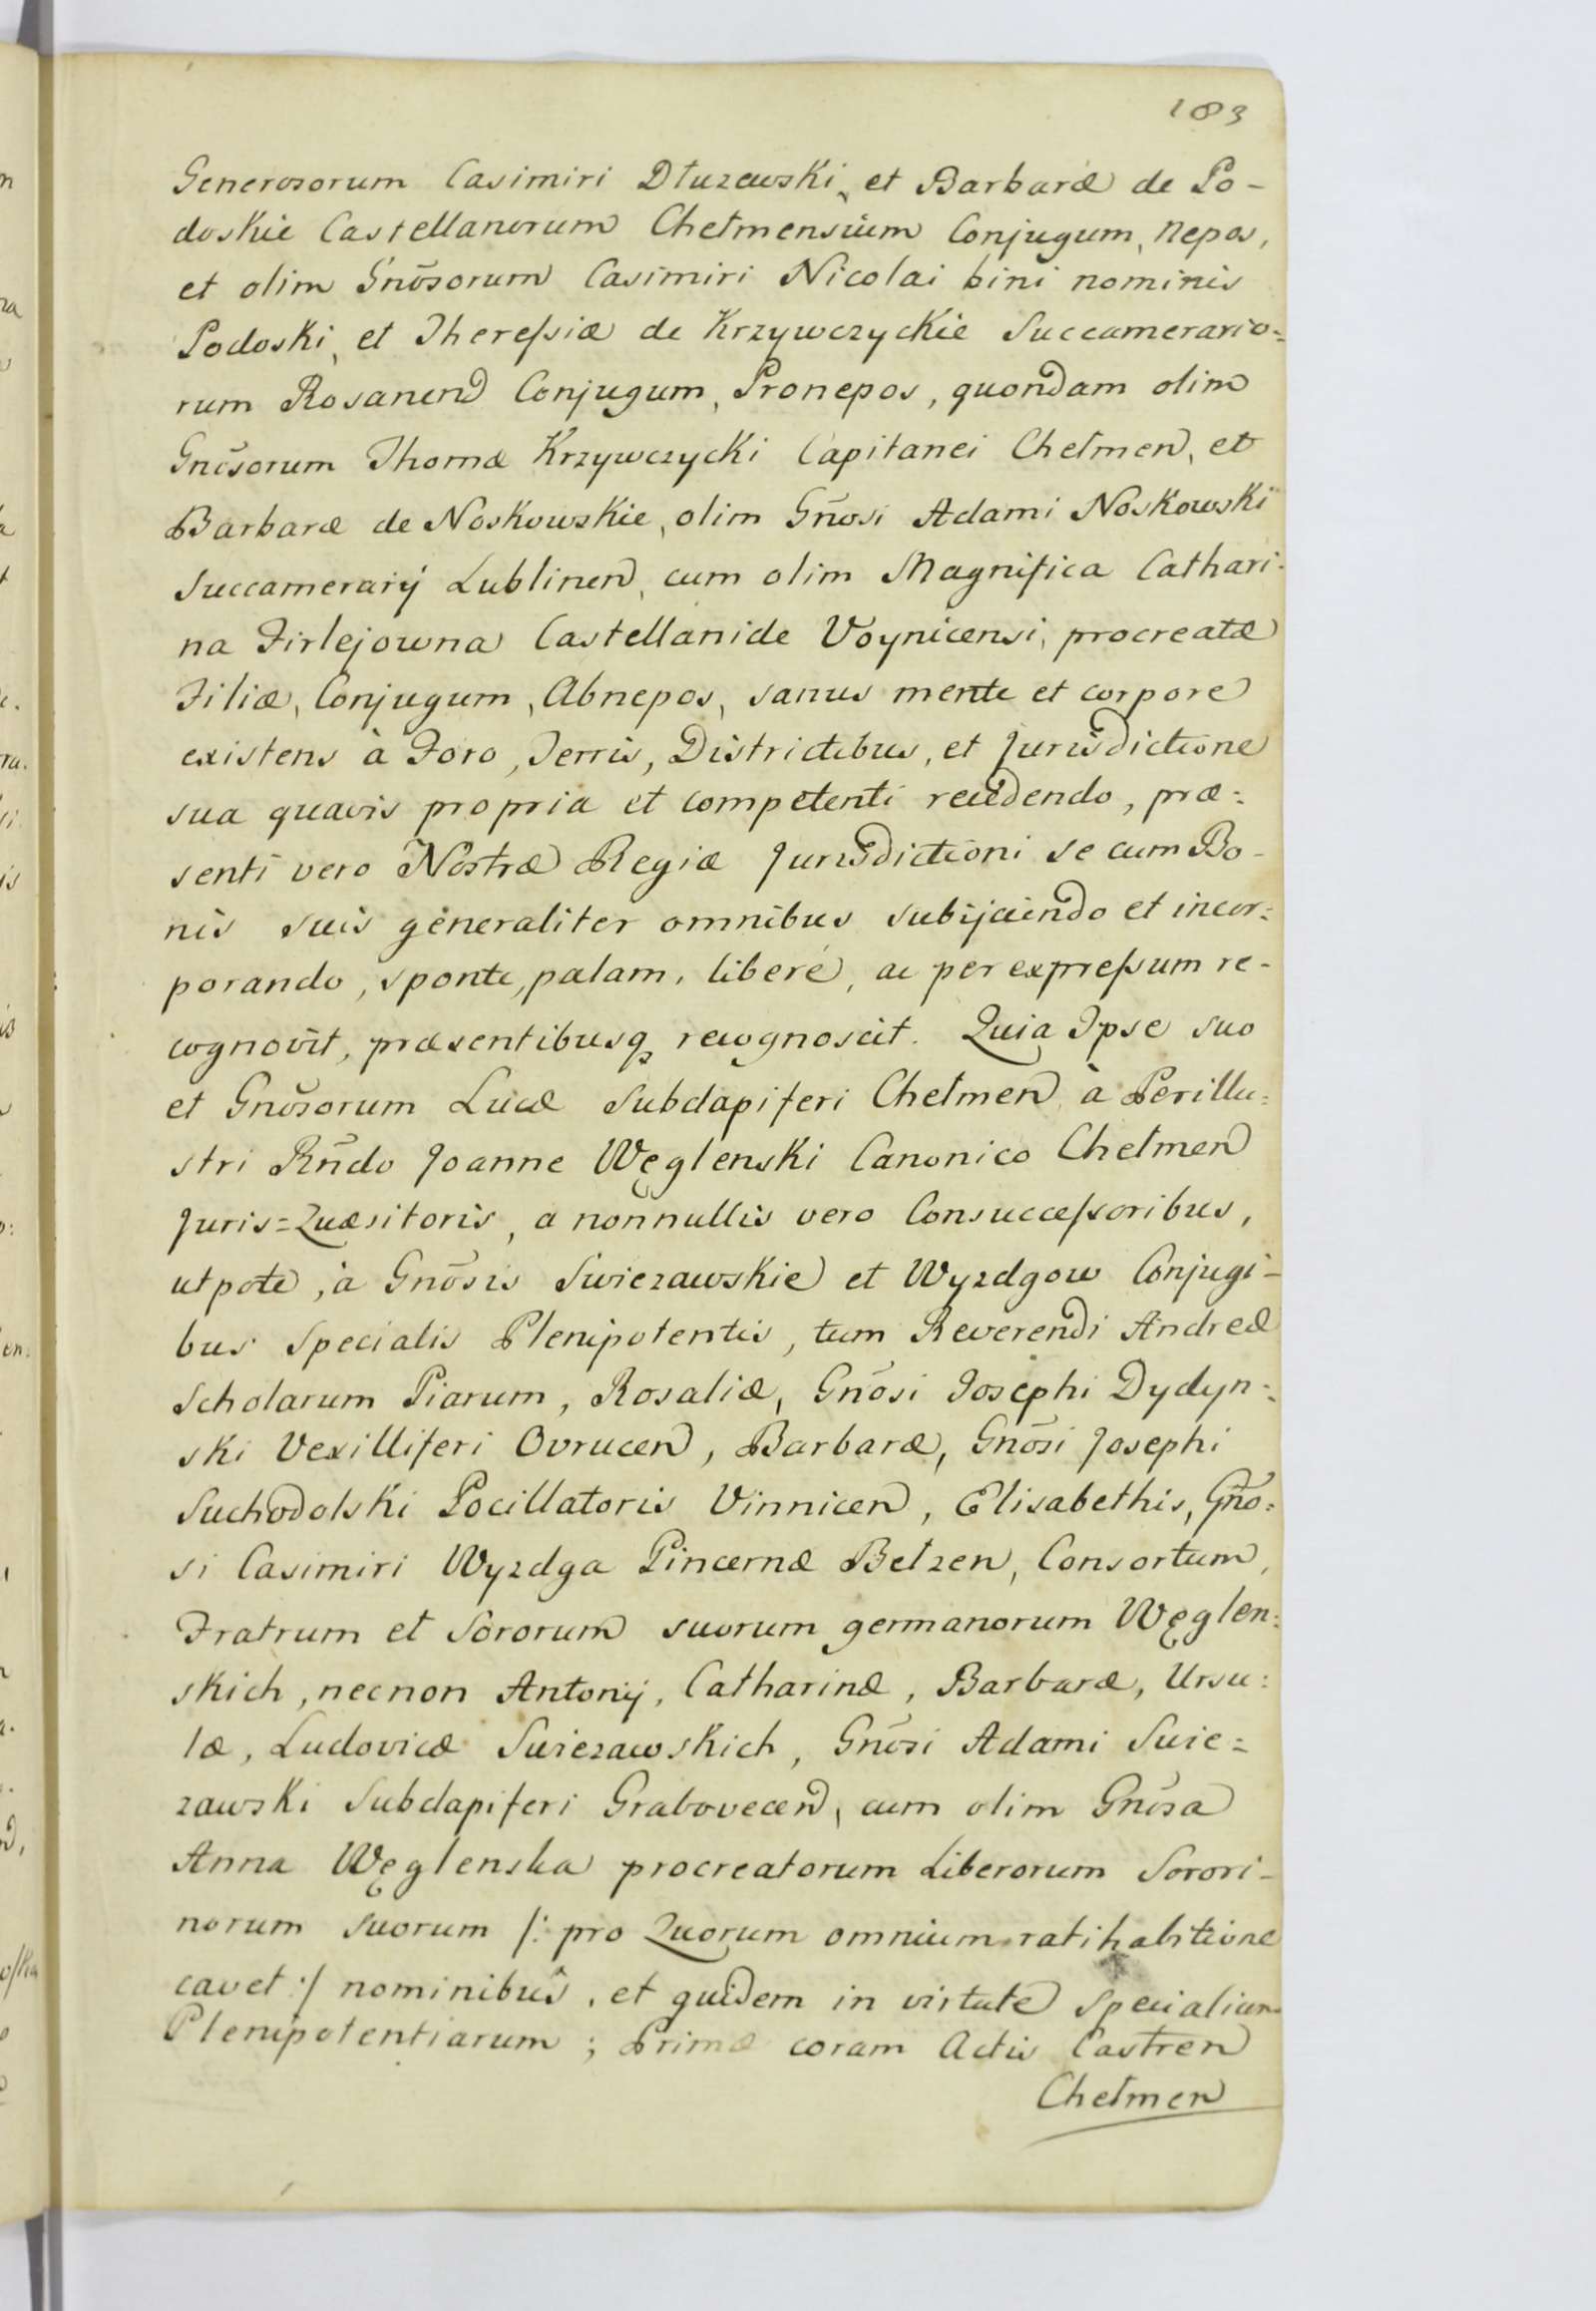 183
Generosorum Casimiri Dłuzewski, et Barbaræ de Po-
doskie Castellanorum Chełmensium Conjugum, Nepos,
et olim Gnõsorum Casimiri Nicolai bini nominis
Podoski, et Theressiæ de Krzywczyckie Succamerario=
rum Rosanen Conjugum, Pronepos, quondam olim
Gnõsorum Thomæ Krzywczycki Capitanei Chełmen, et
Barbaræ de Noskowskie, olim Gñosi Adami Noskowski
Succamerarij Lublinen, cum olim Magnifica Cathari-
na Firlejowna Castellanide Voynicensi, procreatæ
Filiæ, Conjugum, Abnepos, sanus mente et corpore
existens à Foro, Terris, Districtibus, et Jurisdictione
sua quavis propria et competenti recedendo, præ=
senti vero Nostræ Regiæ Jurisdictioni se cum Bo-
nis suis generaliter omnibus subijciendo et incor=
porando, sponte, palam, liberé, ac per expressum re-
cognovit, præsentibusq recognoscit. Quia Ipse suo
et Gnõsorum Lucæ Subdapiferi Chełmen à Perillu=
stri Rñdo Joanne Węglenski Canonico Chełmen
Juris=Quæsitoris, a nonnullis vero Consuccessoribus,
utpote, à Gnõsis Swiezawskie et Wyzdgow Conjugi-
bus Specialis Plenipotentis, tum Reverendi Andreæ
Scholarum Piarum, Rosaliæ, Gnõsi Josephi Dydyn=
ski Vexilliferi Ovrucen, Barbaræ, Gnõsi Josephi
Suchodolski Pocillatoris Vinnicen, Elisabethis, Gño=
si Casimiri Wyzdga Pincernæ Bełzen, Consortum,
Fratrum et Sororum suorum germanorum Węglen=
skich, necnon Antonij, Catharinæ, Barbaræ, Ursu=
læ, Ludovicæ Swiezawskich, Gnõsi Adami Swie=
zawski Subdapiferi Grabovecen, cum olim Gnõsa
Anna Węglenska procreatorum Liberorum Sorori-
norum suorum /: pro Quorum omnium ratihabitione
cavet :/ nominibus, et quidem in virtute Specialium
Plenipotentiarum; Primæ coram Actis Castren
Chełmen